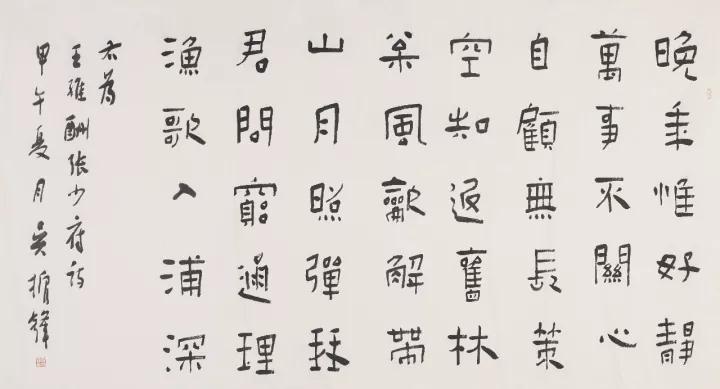 晚年惟好靜
萬事不關心
自顧無長策
空知返舊林
松風龡解帶
山月照彈琴
君問窮通理
漁歌入浦深
右為
王維酬張少府詩
甲午夏月吳振鋒